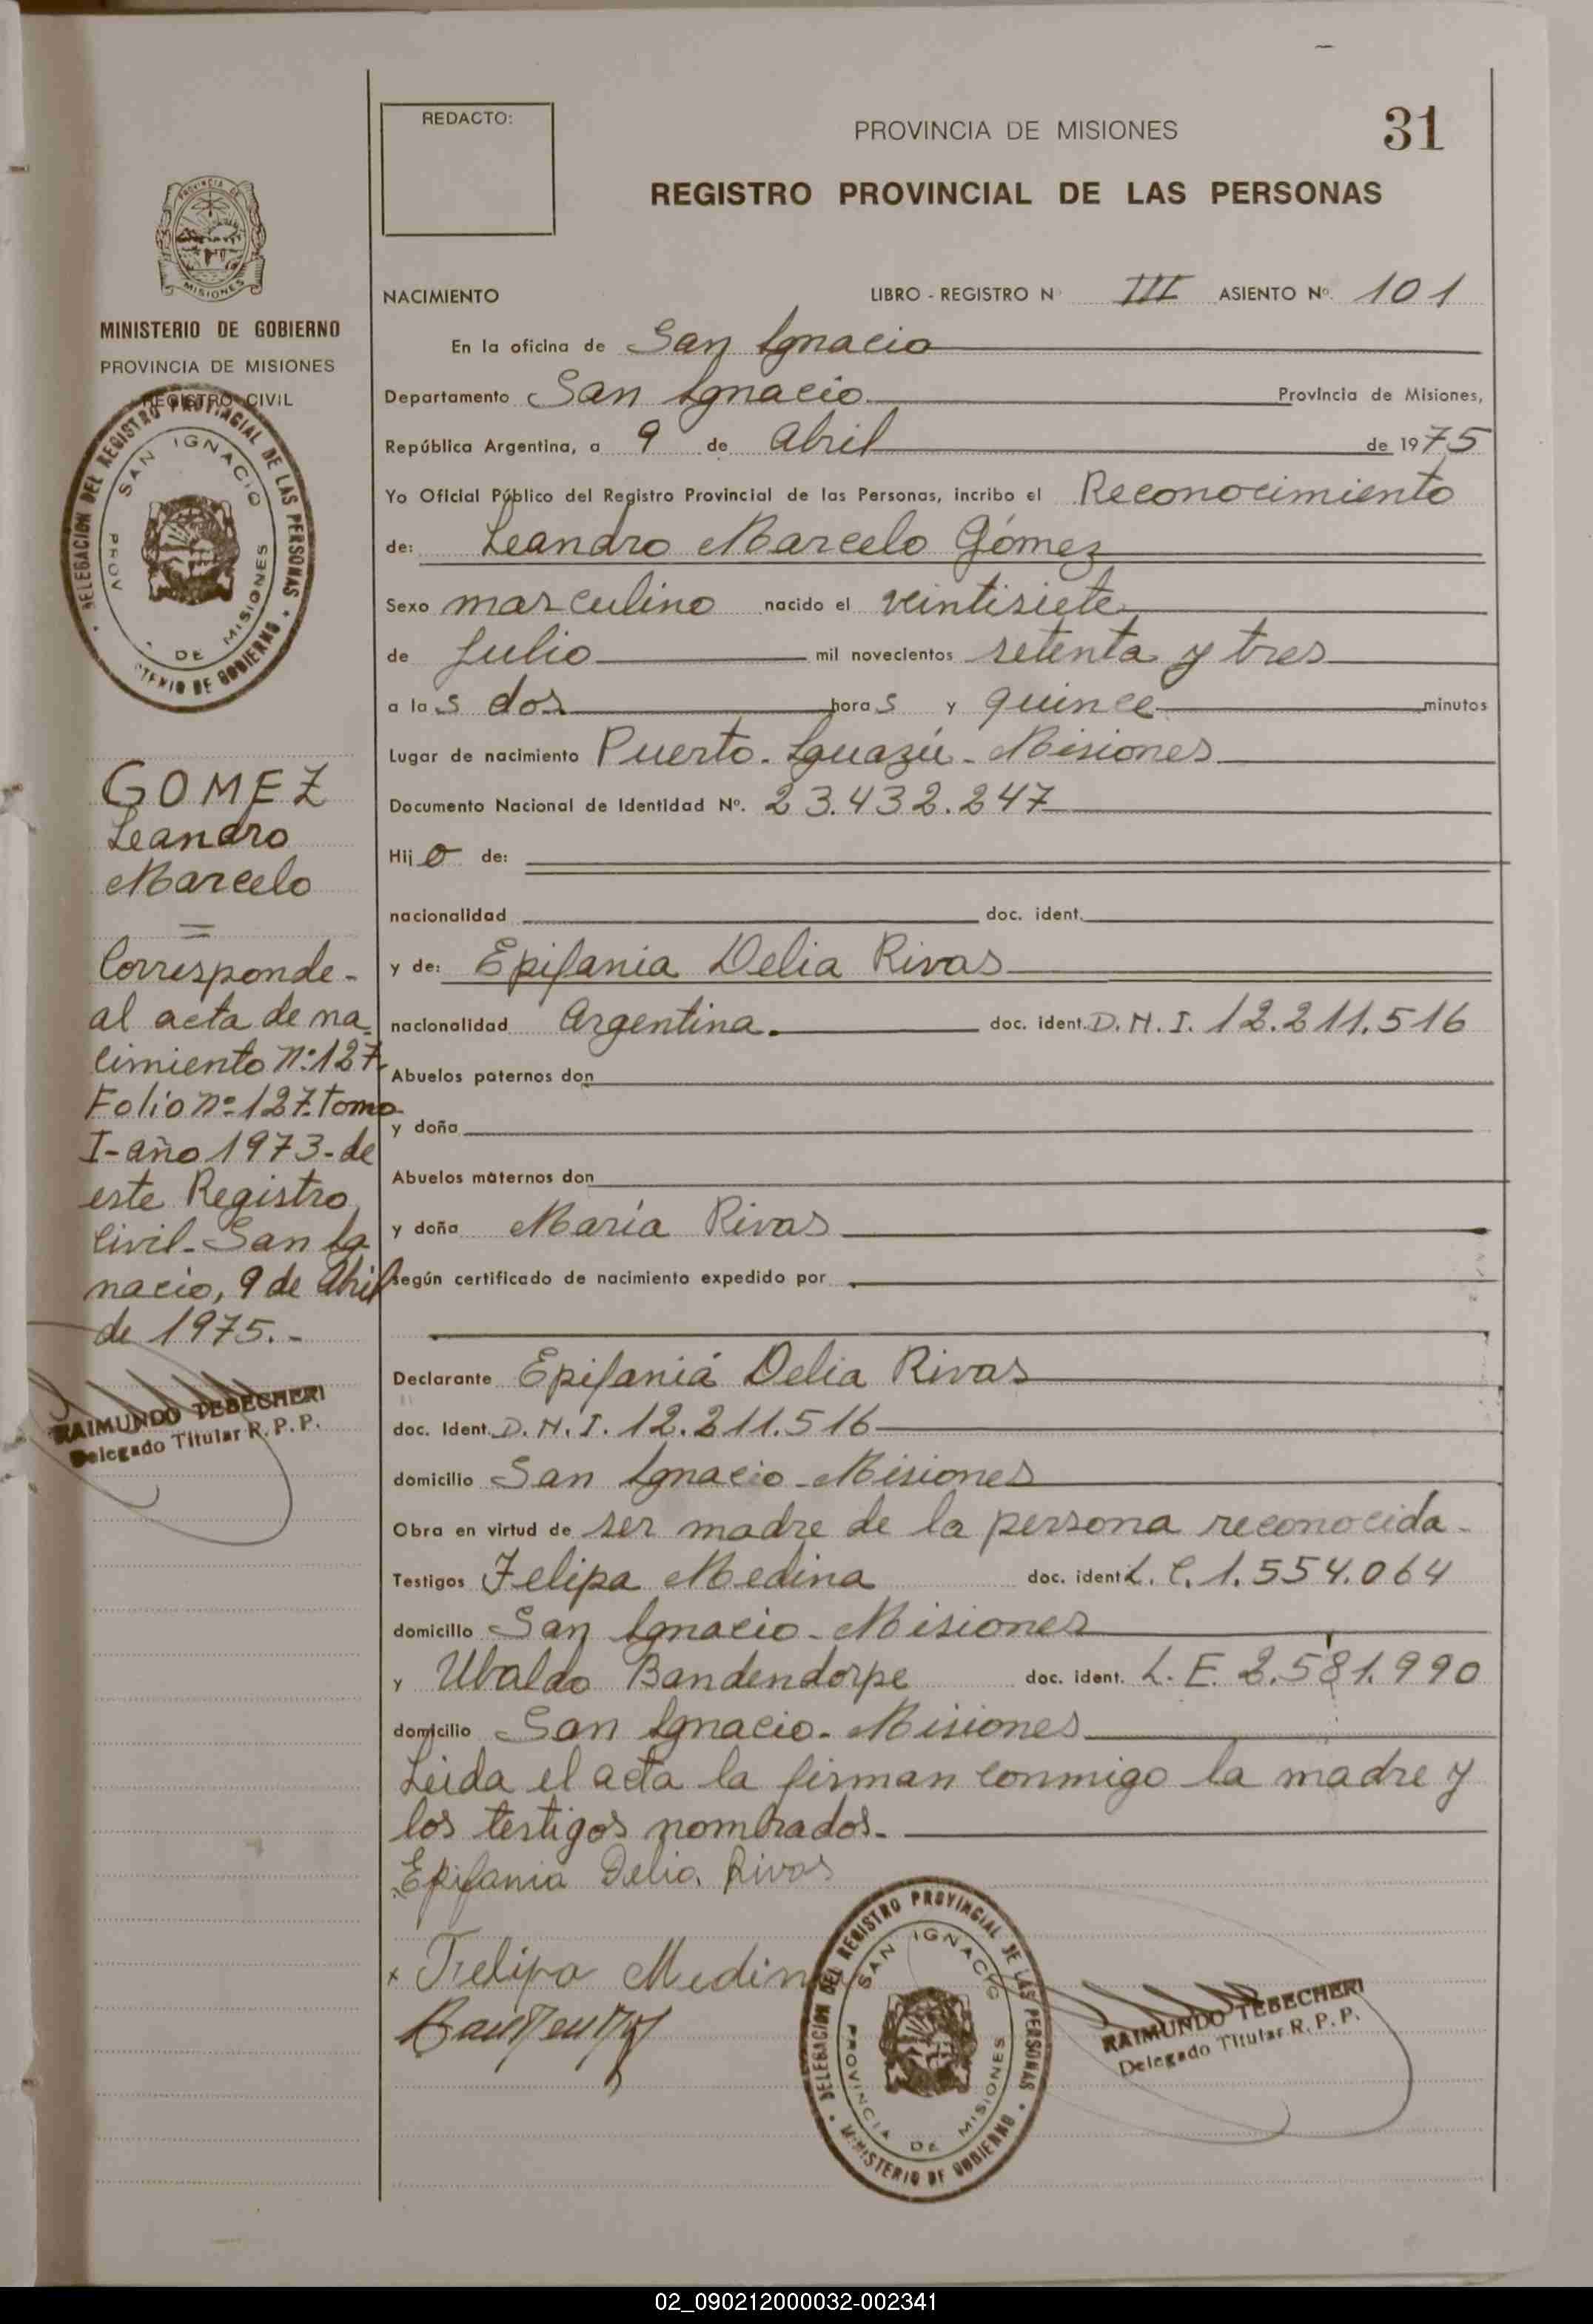 REDACTO:
PROVINCIA DE MISIONES
31
REGISTRO PROVINCIAL DE LAS PERSONAS
PROVINCIA DE
MISIONES
MINISTERIO DE GOBIERNO
PROVINCIA DE MISIONES
REGISTRO CIVIL
DELEGACION DEL REGISTRO PROVINCIAL DE LAS PERSONAS
SAN IGNACIO
PROV DE MISIONES
NACIMIENTO LIBRO - REGISTRO N° III ASIENTO N° 101
En la oficina de San Ignacio
Departamento San Ignacio Provincia de Misiones,
República Argentina, a 9 de Abril de 1975
Yo Oficial Público del Registro Provincial de las Personas, incribo el Reconocimiento
de: Leandro Marcelo Gómez
Sexo masculino nacido el veintisiete
de Julio mil novecientos setenta y tres
a las dos horas y quince minutos
Lugar de nacimiento Puerto-Iguazú-Misiones
Documento Nacional de Identidad N°. 23.432.247
Hijo de:
nacionalidad doc. ident.
y de: Epifania Delia Rivas
nacionalidad Argentina. doc. ident. D.N.I. 12.211.516
Abuelos paternos don
y doña
Abuelos maternos don
y doña María Rivas
según certificado de nacimiento expedido por
Declarante Epifania Delia Rivas
doc. Ident. D.N.I. 12.211.516
domicilio San Ignacio-Misiones
Obra en virtud de ser madre de la persona reconocida-
Testigos Felipa Medina doc. ident L.C. 1.554.064
domicilio San Ignacio-Misiones
y Ubaldo Bandendorpe doc. ident. L.E. 2.581.990
domicilio San Ignacio-Misiones
Leida el acta la firman conmigo la madre y
los testigos nombrados-
Epifania Delia Rivas
x Felipa Medina
DELEGACION DEL REGISTRO PROVINCIAL DE LAS PERSONAS
MINISTERIO DE GOBIERNO
SAN IGNACIO
PROVINCIA DE MISIONES
RAIMUNDO TEBECHERI
Delegado Titular R.P.P.
GOMEZ
Leandro
Marcelo
=
Corresponde-
al acta de na-
cimiento n°:127-
Folio n°127-tomo
I-año 1973-de
este Registro
Civil-San Ig
nacio, 9 de Abril
de 1975.-
RAIMUNDO TEBECHERI
Delegado Titular R.P.P.
02_090212000032-002341